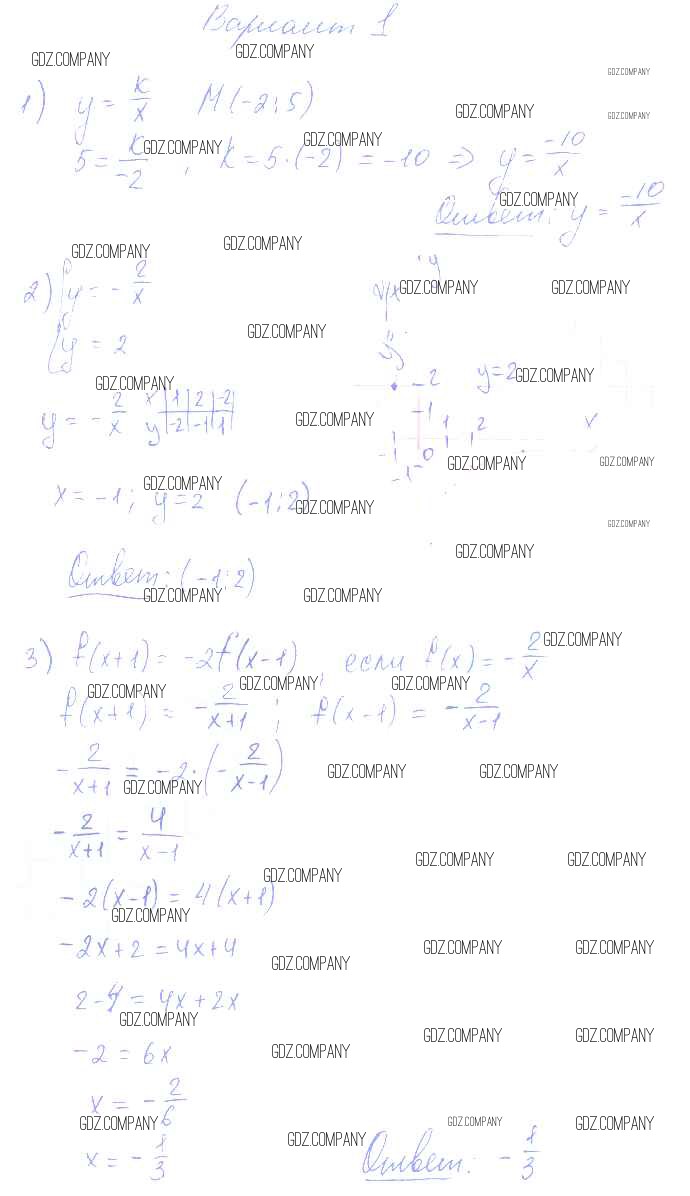 Вариант 1
GDZ.COMPANY GDZ.COMPANY GDZ.COMPANY
1) y = k/x M(-2; 5)
GDZ.COMPANY GDZ.COMPANY
5 = k/-2 , k = 5·(-2) = -10 ⇒ y = -10/x
GDZ.COMPANY GDZ.COMPANY
Ответ: y = -10/x
GDZ.COMPANY
GDZ.COMPANY GDZ.COMPANY
2) { y = -2/x
y
GDZ.COMPANY GDZ.COMPANY
y = 2
GDZ.COMPANY
GDZ.COMPANY -2 y=2 GDZ.COMPANY
y = -2/x x 1 2 -2
y -2 -1 1
GDZ.COMPANY
-1 1 2 x
-1 0
-1
GDZ.COMPANY GDZ.COMPANY
x = -1; y = 2 (-1; 2)
GDZ.COMPANY GDZ.COMPANY GDZ.COMPANY
GDZ.COMPANY
Ответ: (-1; 2)
GDZ.COMPANY GDZ.COMPANY
3) f(x+1) = -2f(x-1), если f(x) = -2/x
GDZ.COMPANY
GDZ.COMPANY GDZ.COMPANY GDZ.COMPANY
f(x+1) = -2/x+1 ; f(x-1) = -2/x-1
-2/x+1 = -2·(-2/x-1)
GDZ.COMPANY GDZ.COMPANY GDZ.COMPANY
-2/x+1 = 4/x-1
GDZ.COMPANY GDZ.COMPANY GDZ.COMPANY
-2(x-1) = 4(x+1)
GDZ.COMPANY
-2x+2 = 4x+4
GDZ.COMPANY GDZ.COMPANY GDZ.COMPANY
2-4 = 4x+2x
GDZ.COMPANY GDZ.COMPANY GDZ.COMPANY
-2 = 6x
GDZ.COMPANY
x = -2/6
GDZ.COMPANY GDZ.COMPANY GDZ.COMPANY
x = -1/3 GDZ.COMPANY Ответ: -1/3